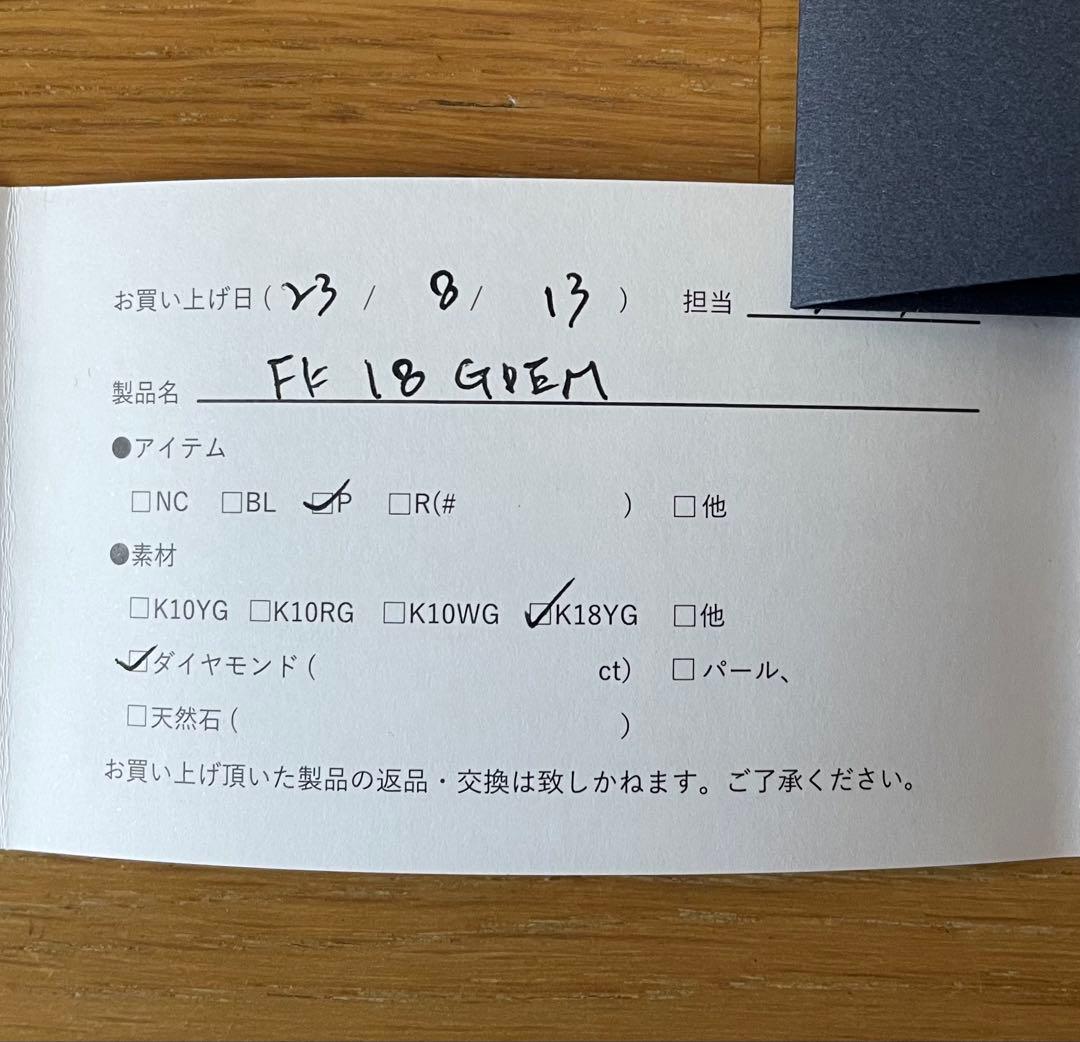 お買い上げ日 ( 23 / 8 / 13 ) 担当
製品名 FK 18 GDEM
●アイテム
□NC □BL ☑P □R(# ) □他
●素材
□K10YG □K10RG □K10WG ☑K18YG □他
☑ダイヤモンド ( ct) □パール、
□天然石 ( )
お買い上げ頂いた製品の返品・交換は致しかねます。ご了承ください。